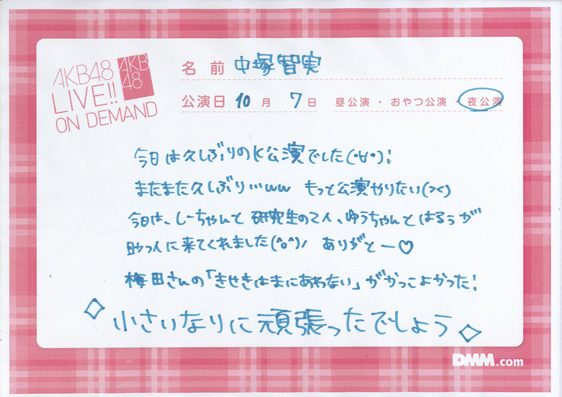 AKB48
LIVE!!
ON DEMAND
AKB
48
名前 中塚智実
公演日 10月 7日 昼公演・おやつ公演・夜公演
今日は久しぶりのK公演でした(・∀・)!
またまた久しぶり…ww もっと公演やりたい(><)
今日は、しーちゃんと研究生の2人、ゆうちゃんとはるぅが
助っ人に来てくれました(^o^)/ ありがとー♡
梅田さんの「きせきはまにあわない」がかっこよかった!
◇小さいなりに頑張ったでしょう◇
DMM.com